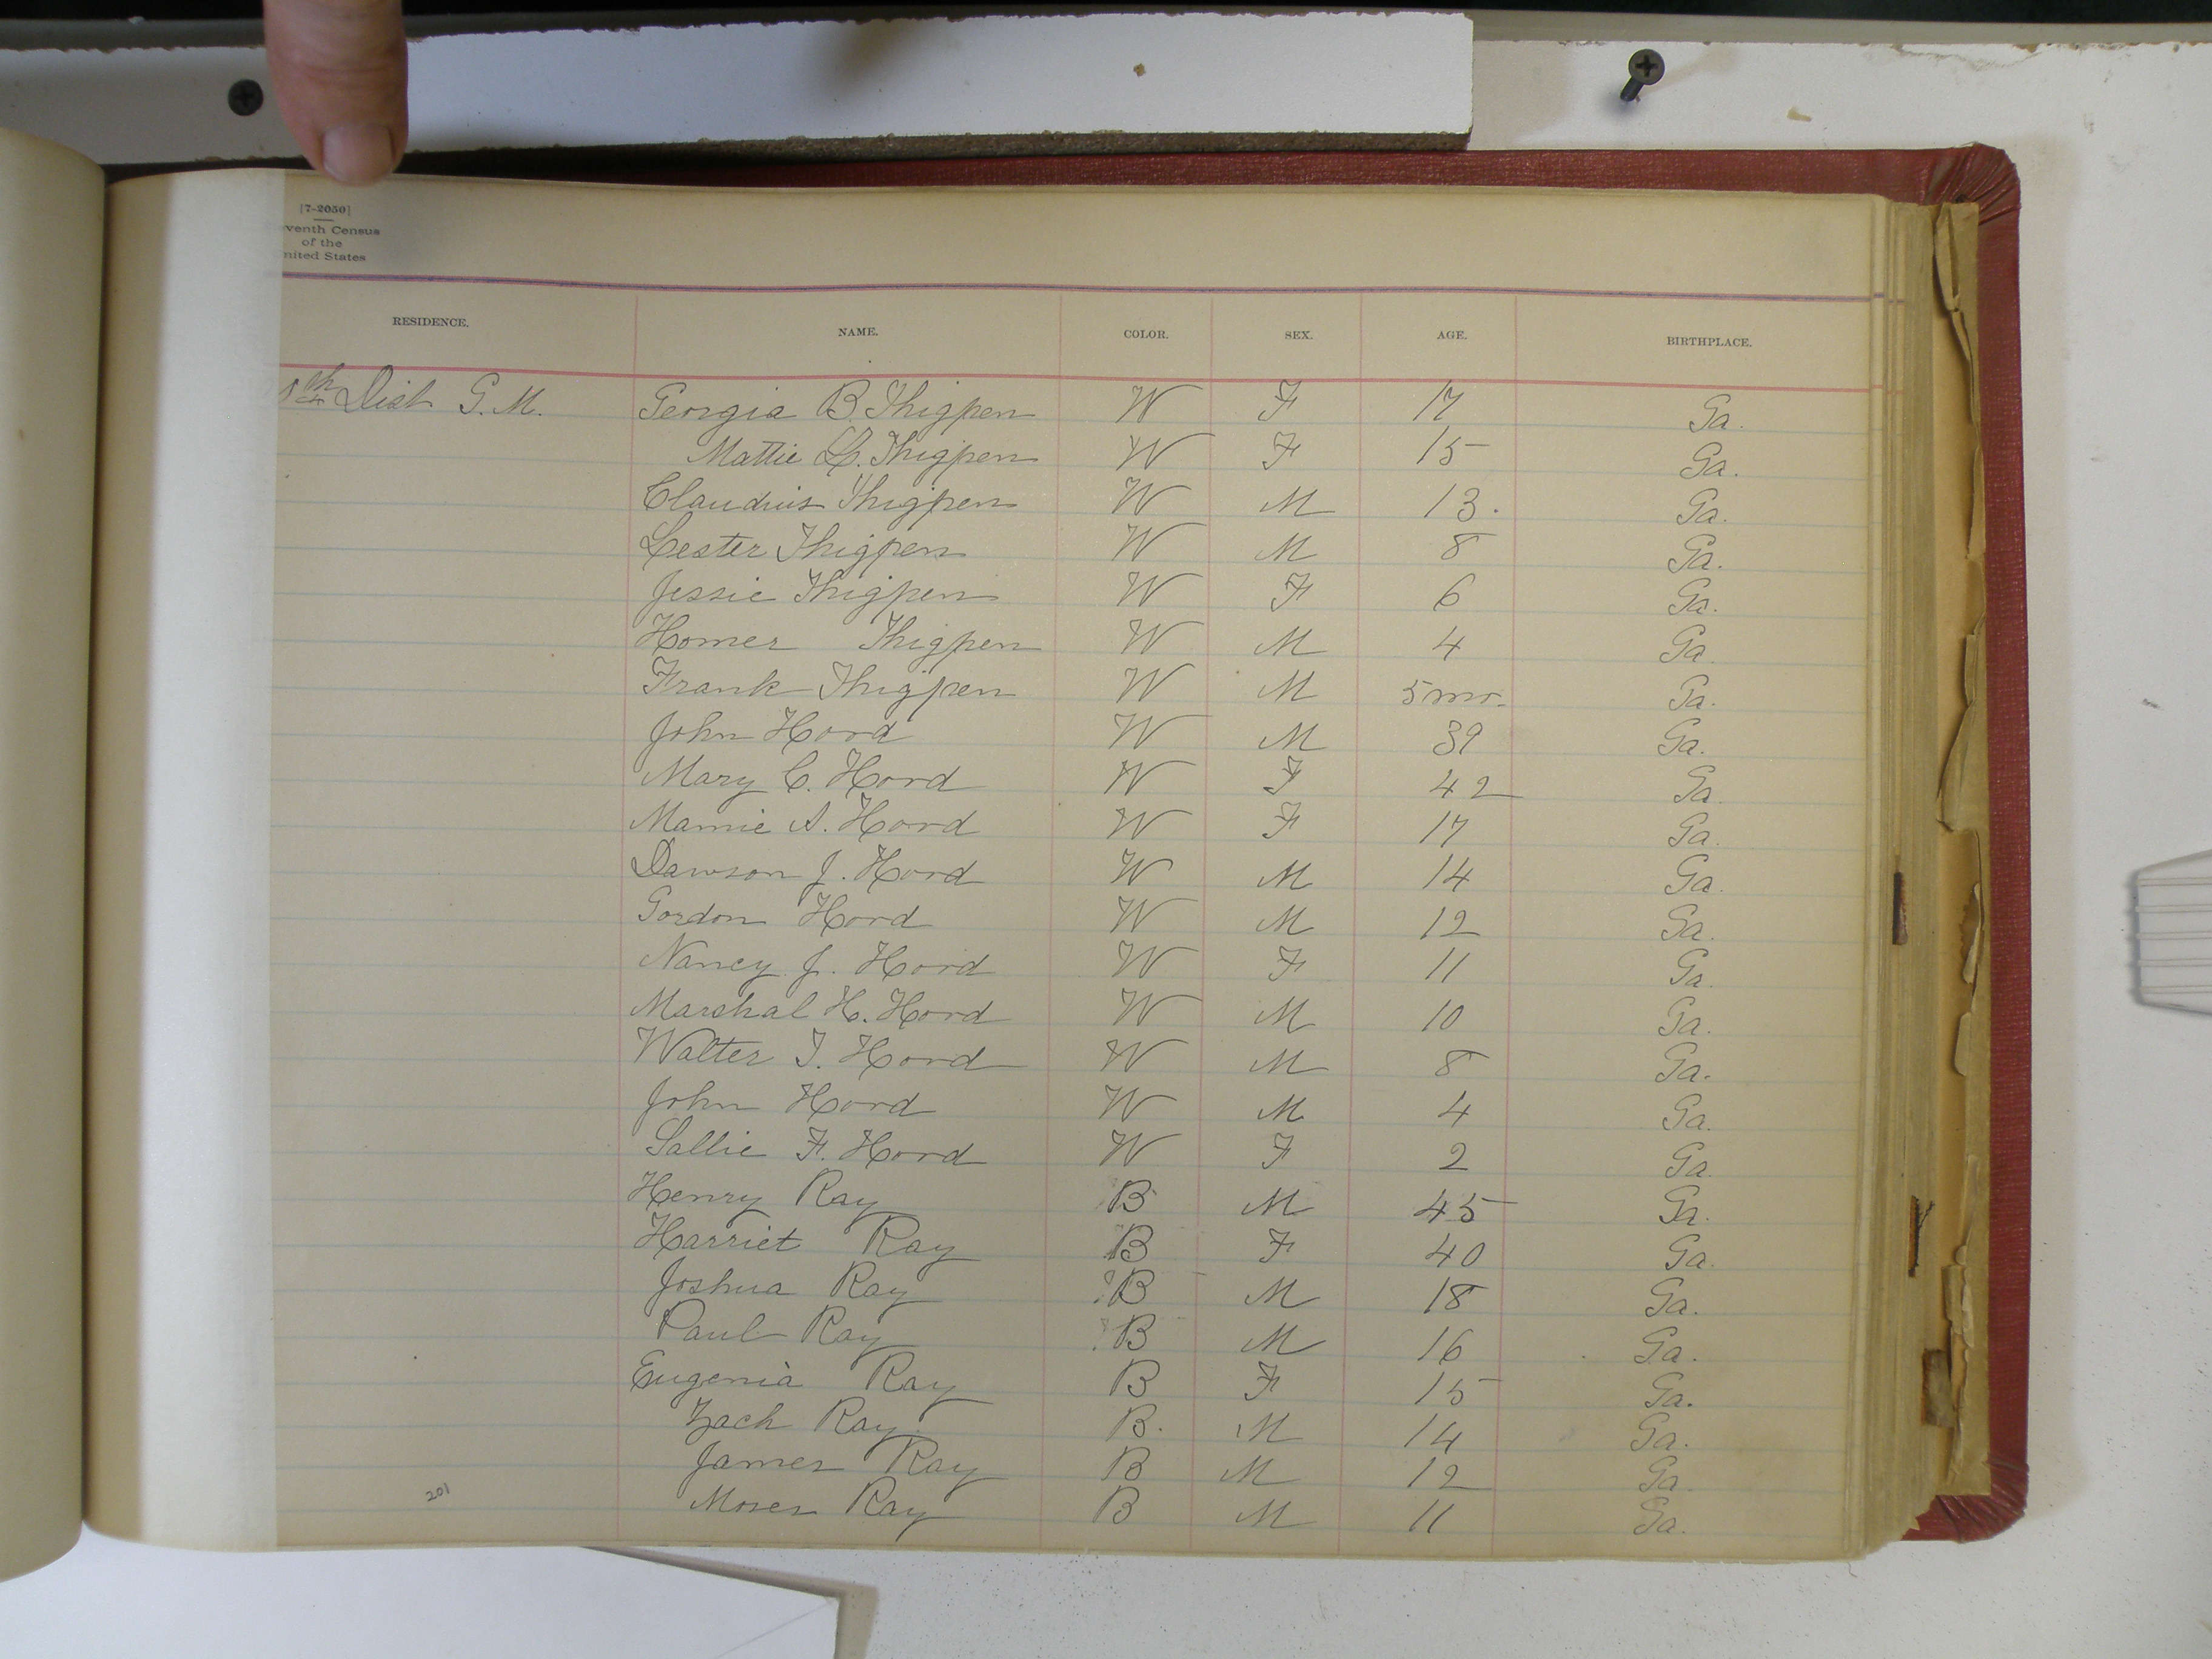 [7-2050]
venth Census
of the
nited States
RESIDENCE. NAME. COLOR. SEX. AGE. BIRTHPLACE.
8th Dist G.M. Georgia B. Thigpen W F 17 Ga.
Mattie L. Thigpen W F 15 Ga.
Claudius Thigpen W M 13. Ga.
Lester Thigpen W M 8 Ga.
Jessie Thigpen W F 6 Ga.
Homer Thigpen W M 4 Ga.
Frank Thigpen W M 5 mo. Ga.
John Hord W M 39 Ga.
Mary C. Hord W F 42 Ga.
Mamie A. Hord W F 17 Ga.
Dawson J. Hord W M 14 Ga.
Gordon Hord W M 12 Ga.
Nancy J. Hord W F 11 Ga.
Marshal H. Hord W M 10 Ga.
Walter T. Hord W M 8 Ga.
John Hord W M 4 Ga.
Sallie F. Hord W F 2 Ga.
Henry Ray B M 45 Ga.
Harriet Ray B F 40 Ga.
Joshua Ray B M 18 Ga.
Paul Ray B M 16 Ga.
Eugenia Ray B F 15 Ga.
Zach Ray B. M 14 Ga.
James Ray B M 12 Ga
Moses Ray B M 11 Ga.
201